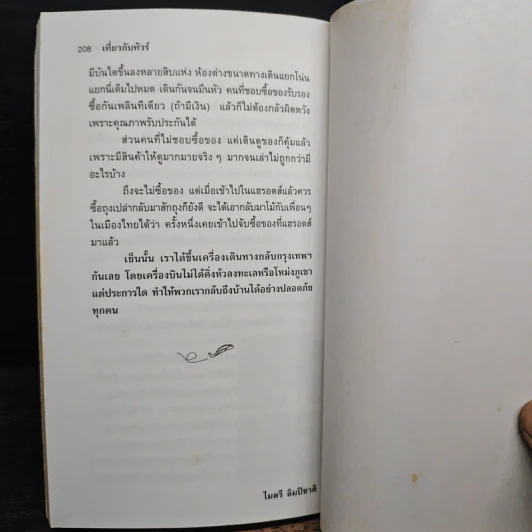 208 เที่ยวกับทัวร์
มีบันไดขึ้นลงหลายสิบแห่ง ห้องต่างขนาดทางเดินแยกโน่น
แยกนี่เต็มไปหมด เดินกันจนมึนหัว คนที่ชอบซื้อของรับรอง
ซื้อกันเพลินทีเดียว (ถ้ามีเงิน) แล้วก็ไม่ต้องกลัวผิดหวัง
เพราะคุณภาพรับประกันได้
ส่วนคนที่ไม่ชอบซื้อของ แค่เดินดูของก็คุ้มแล้ว
เพราะมีสินค้าให้ดูมากมายจริง ๆ มากจนเล่าไม่ถูกว่ามี
อะไรบ้าง
ถึงจะไม่ซื้อของ แต่เมื่อเข้าไปในแฮรอดส์แล้วควร
ซื้อถุงเปล่ากลับมาสักถุงก็ยังดี จะได้เอากลับมาโม้กับเพื่อนๆ
ในเมืองไทยได้ว่า ครั้งหนึ่งเคยเข้าไปจับซื้อของที่แฮรอดส์
มาแล้ว
เย็นนั้น เราได้ขึ้นเครื่องเดินทางกลับกรุงเทพฯ
กันเลย โดยเครื่องบินไม่ได้ดิ่งหัวลงทะเลหรือโหม่งภูเขา
แต่ประการใด ทำให้พวกเรากลับถึงบ้านได้อย่างปลอดภัย
ทุกคน
ไมตรี ลิมปิชาติ